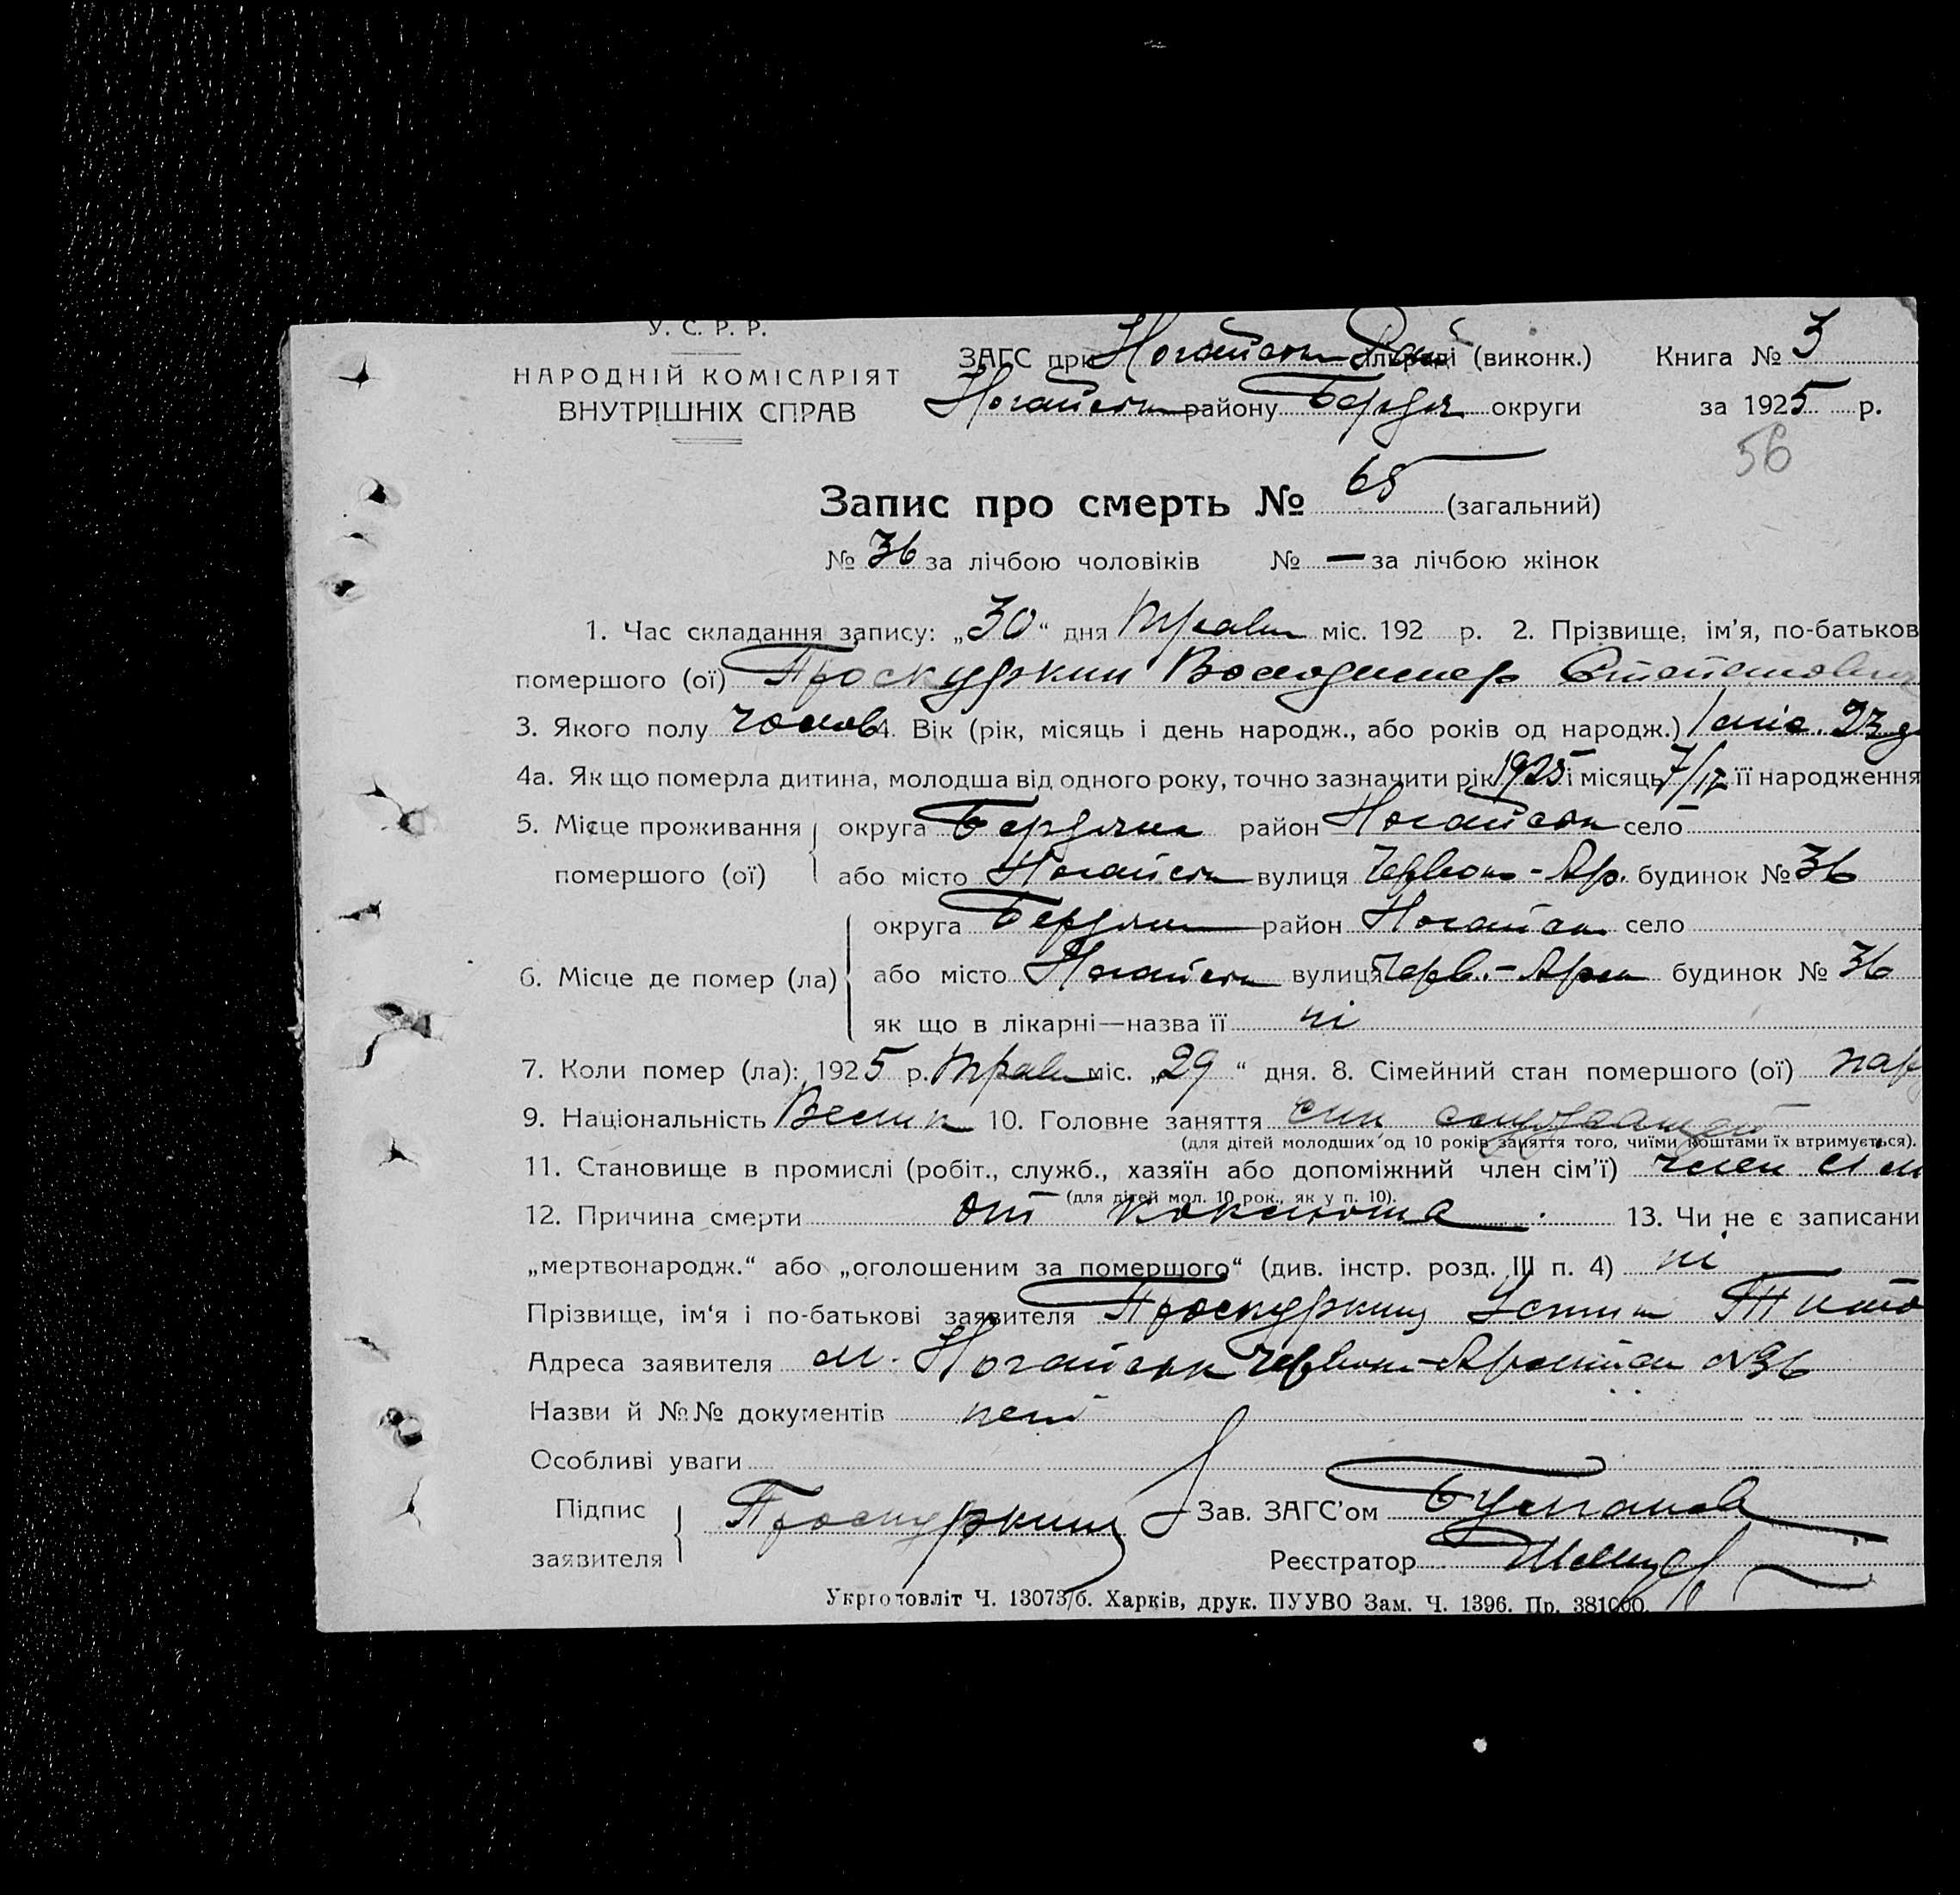 У. С. Р. Р.
НАРОДНІЙ КОМІСАРІЯТ
ВНУТРІШНІХ СПРАВ
ЗАГС при Ногайськ (виконк.) Книга № 3
Ногайськ району Бердя округи за 1925 р.
56
Запис про смерть № 65 (загальний)
№ 36 за лічбою чоловіків № — за лічбою жінок
1. Час складання запису: „30“ дня Травн міс. 192 р. 2. Прізвище, ім’я, по-батьков
помершого (ої) Проскуркин Володимер
3. Якого полу чолов 4. Вік (рік, місяць і день народж., або років од народж.) 1 міс. 23 д
4а. Як що померла дитина, молодша від одного року, точно зазначити рік 1925 і місяць 7/IV її народження
5. Місце проживання помершого (ої) округа Бердянск район Ногайськ село
або місто Ногайськ вулиця Червон-Ар. будинок № 36
6. Місце де помер (ла) округа Бердянс район Ногайськ село
або місто Ногайськ вулиця Черв.-Арм будинок № 36
як що в лікарні—назва її ні
7. Коли помер (ла): 1925 р. Травн міс. „29“ дня. 8. Сімейний стан помершого (ої) пар
9. Національність 10. Головне заняття син
(для дітей молодших од 10 років заняття того, чиїми коштами їх втримується).
11. Становище в промислі (робіт., служб., хазяїн або допоміжний член сім’ї) член сім
(для дітей мол. 10 рок., як у п. 10).
12. Причина смерти от коклюша. 13. Чи не є записани
„мертвонародж.“ або „оголошеним за померщого“ (див. інстр. розд. III п. 4) ні
Прізвище, ім‘я і по-батькові заявителя Проскуркин Устин Тито
Адреса заявителя м. Ногайськ Червон-Армійск №36
Назви й №№ документів нет
Особливі уваги
Підпис заявителя Проскуркин Зав. ЗАГС’ом
Реєстратор
Укрголовліт Ч. 13073/б. Харків, друк. ПУУВО Зам. Ч. 1396. Пр. 381000.